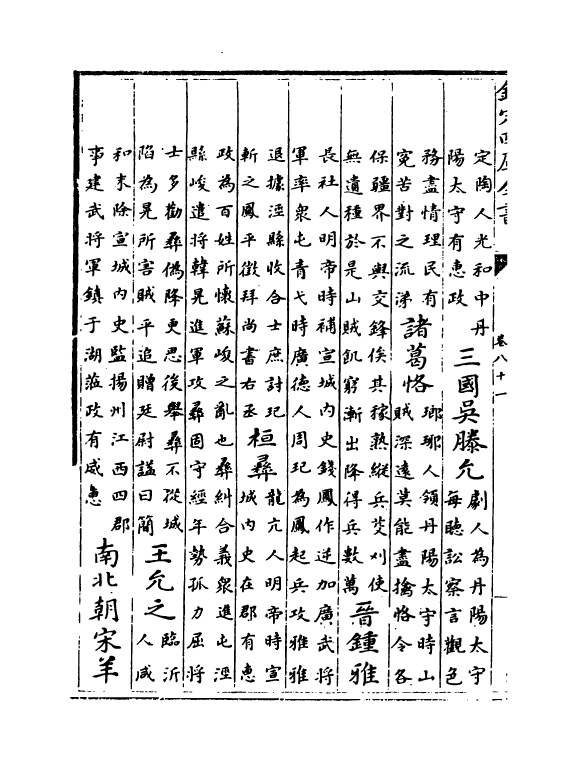 欽定四庫全書
卷八十一
定陶人光和中丹
陽太守有惠政
三國吳滕允
劇人為丹陽太守
每聽訟察言觀色
務盡情理民有
寃苦對之流涕
諸葛恪
瑯琊人領丹陽太守時山
賊深遠莫能盡擒恪令各
保疆界不與交鋒俟其稼熟縱兵芟刈使
無遺種於是山賊飢窮漸出降得兵數萬
晉鍾雅
長社人明帝時補宣城内史錢鳳作逆加廣武將
軍率衆屯青弋時廣德人周玘為鳳起兵攻雅雅
退據涇縣收合士庶討玘
斬之鳳平徵拜尚書右丞
桓彝
龍亢人明帝時宣
城内史在郡有惠
政為百姓所懷蘇峻之亂也彝糾合義衆進屯涇
縣峻遣將韓晃進軍攻彝固守經年勢孤力屈將
士多勸彝偽降更思後舉彝不從城
陷為晃所害賊平追贈廷尉謚曰簡
王允之
臨沂
人咸
和末除宣城内史監揚州江西四郡
事建武將軍鎮于湖蒞政有威惠
南北朝宋羊